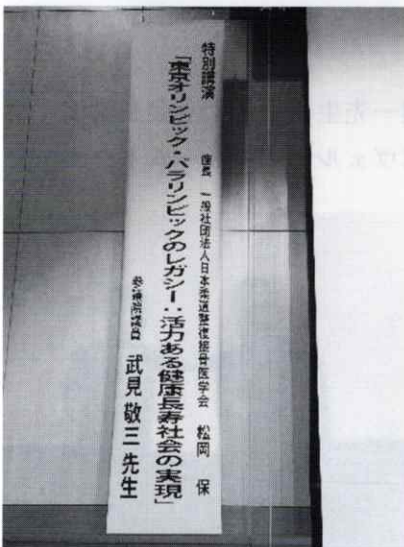 特別講演　座長　一般社団法人日本柔道整復接骨医学会　松岡　保
「東京オリンピック・パラリンピックのレガシー：活力ある健康長寿社会の実現」
参議院議員　武見敬三先生